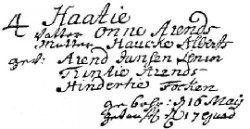 4 Haatie
Vatter Onne Arends
Mutter Haucke Alberts
gev: Arend Jansen
Truntie Arends
Hindertie Focken
gebohr: d 16 May
getauft d 17 quad